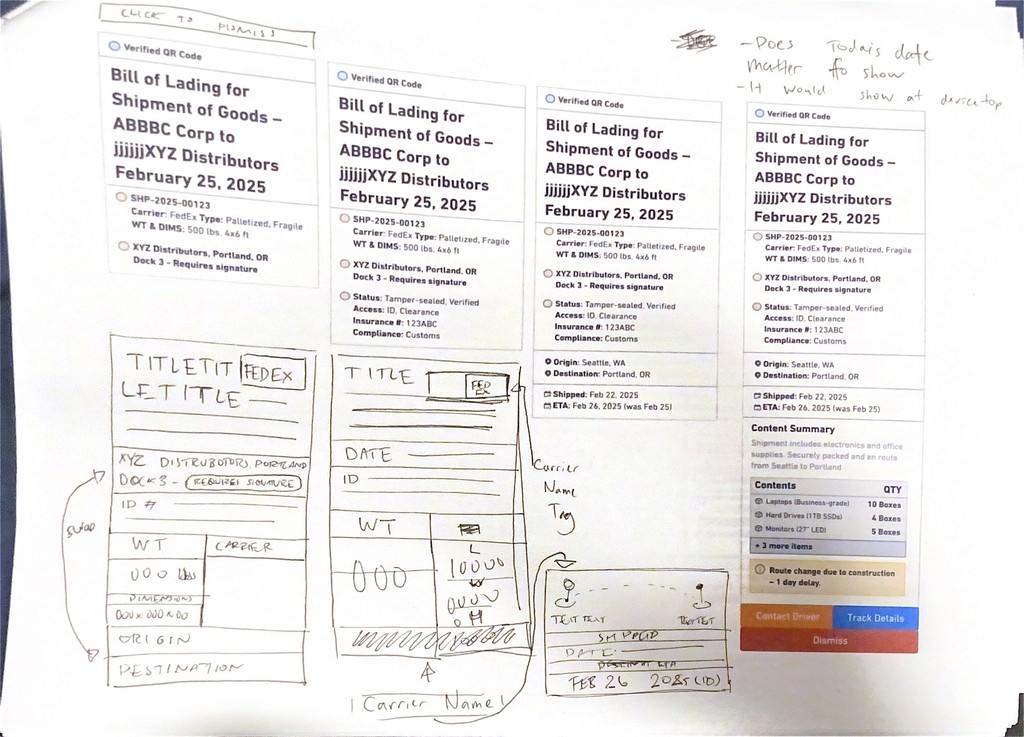 CLICK TO DISMISS
Verified QR Code
Bill of Lading for
Shipment of Goods –
ABBBC Corp to
jjjjjjXYZ Distributors
February 25, 2025
SHP-2025-00123
Carrier: FedEx Type: Palletized, Fragile
WT & DIMS: 500 lbs. 4x6 ft
XYZ Distributors, Portland, OR
Dock 3 - Requires signature
Verified QR Code
Bill of Lading for
Shipment of Goods –
ABBBC Corp to
jjjjjjXYZ Distributors
February 25, 2025
SHP-2025-00123
Carrier: FedEx Type: Palletized, Fragile
WT & DIMS: 500 lbs. 4x6 ft
XYZ Distributors, Portland, OR
Dock 3 - Requires signature
Status: Tamper-sealed, Verified
Access: ID, Clearance
Insurance #: 123ABC
Compliance: Customs
Verified QR Code
Bill of Lading for
Shipment of Goods –
ABBBC Corp to
jjjjjjXYZ Distributors
February 25, 2025
SHP-2025-00123
Carrier: FedEx Type: Palletized, Fragile
WT & DIMS: 500 lbs. 4x6 ft
XYZ Distributors, Portland, OR
Dock 3 - Requires signature
Status: Tamper-sealed, Verified
Access: ID, Clearance
Insurance #: 123ABC
Compliance: Customs
Origin: Seattle, WA
Destination: Portland, OR
Shipped: Feb 22, 2025
ETA: Feb 26, 2025 (was Feb 25)
- Does Today's date
matter to show
- It would show at device top
Verified QR Code
Bill of Lading for
Shipment of Goods –
ABBBC Corp to
jjjjjjXYZ Distributors
February 25, 2025
SHP-2025-00123
Carrier: FedEx Type: Palletized, Fragile
WT & DIMS: 500 lbs. 4x6 ft
XYZ Distributors, Portland, OR
Dock 3 - Requires signature
Status: Tamper-sealed, Verified
Access: ID, Clearance
Insurance #: 123ABC
Compliance: Customs
Origin: Seattle, WA
Destination: Portland, OR
Shipped: Feb 22, 2025
ETA: Feb 26, 2025 (was Feb 25)
Content Summary
Shipment includes electronics and office
supplies. Securely packed and en route
from Seattle to Portland
Contents QTY
Laptops (Business-grade) 10 Boxes
Hard Drives (1TB SSDs) 4 Boxes
Monitors (27" LED) 5 Boxes
+ 3 more items
Route change due to construction
– 1 day delay.
Contact Driver Track Details
Dismiss
TITLETIT FEDEX
LETITLE
XYZ DISTRUBUTORS, PORTLAND
DOCK 3 - REQUIRES SIGNATURE
ID #
WT CARRIER
000
DIMENSIONS
000x000x00
ORIGIN
DESTINATION
SWAP
TITLE FED
EX
DATE
ID
WT
000
L
10000
W
0000
H
Carrier Name
Carrier
Name
Tag
TEXT TEXT TEXTTEXT
SHIPPED
DATE
FEB 26 2025 (ID)